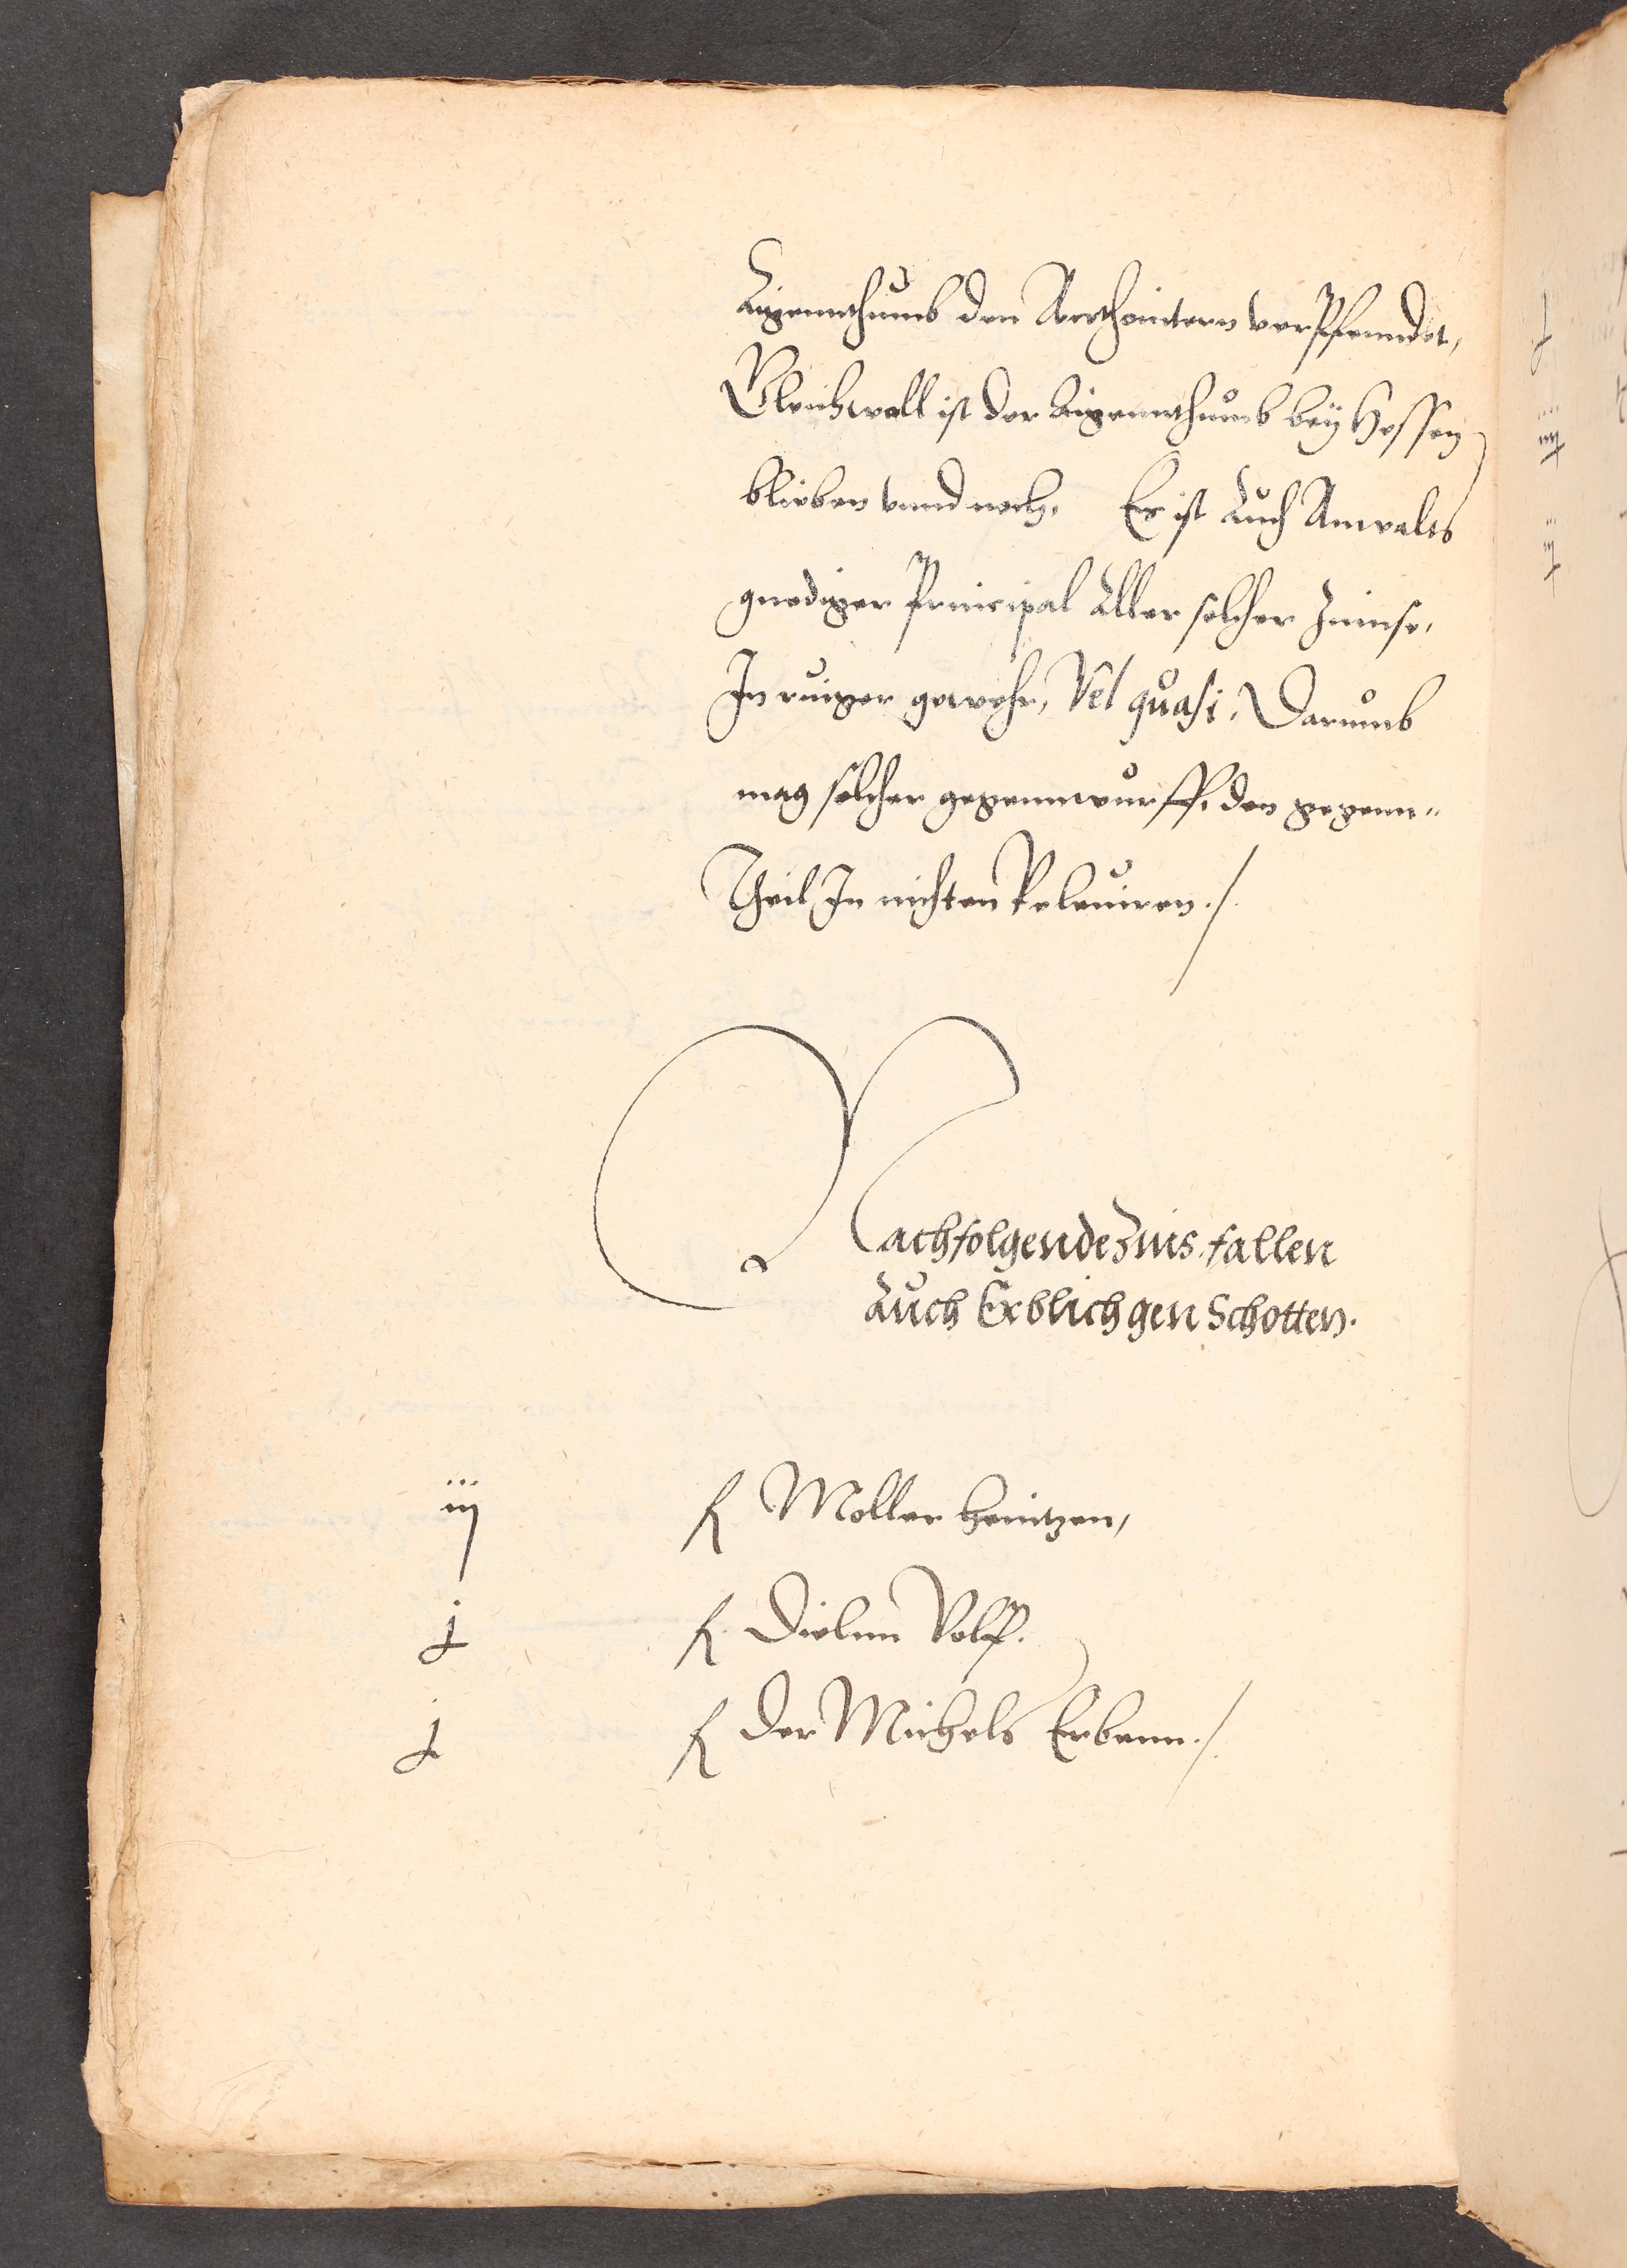 Aigennthumb den Anthonitern verpfenndet,
Gleichwoll ist der Aigennthumb bey Hessen
blieben vnnd noch. Er ist Auch Anwalts
gnediger Principal Aller solcher Zinnse,
In ruiger gewehr, Vel quasi, Darumb
mag solcher gegennwurff, den gegenn„
Theil In nichten Releuiren ./.
Nachfolgende Zins fallen
Auch Erblich gen Schotten.
iij ß Moller Heintzen,
j ß Dielnn Volß.
j ß der Michels Erbenn ./.